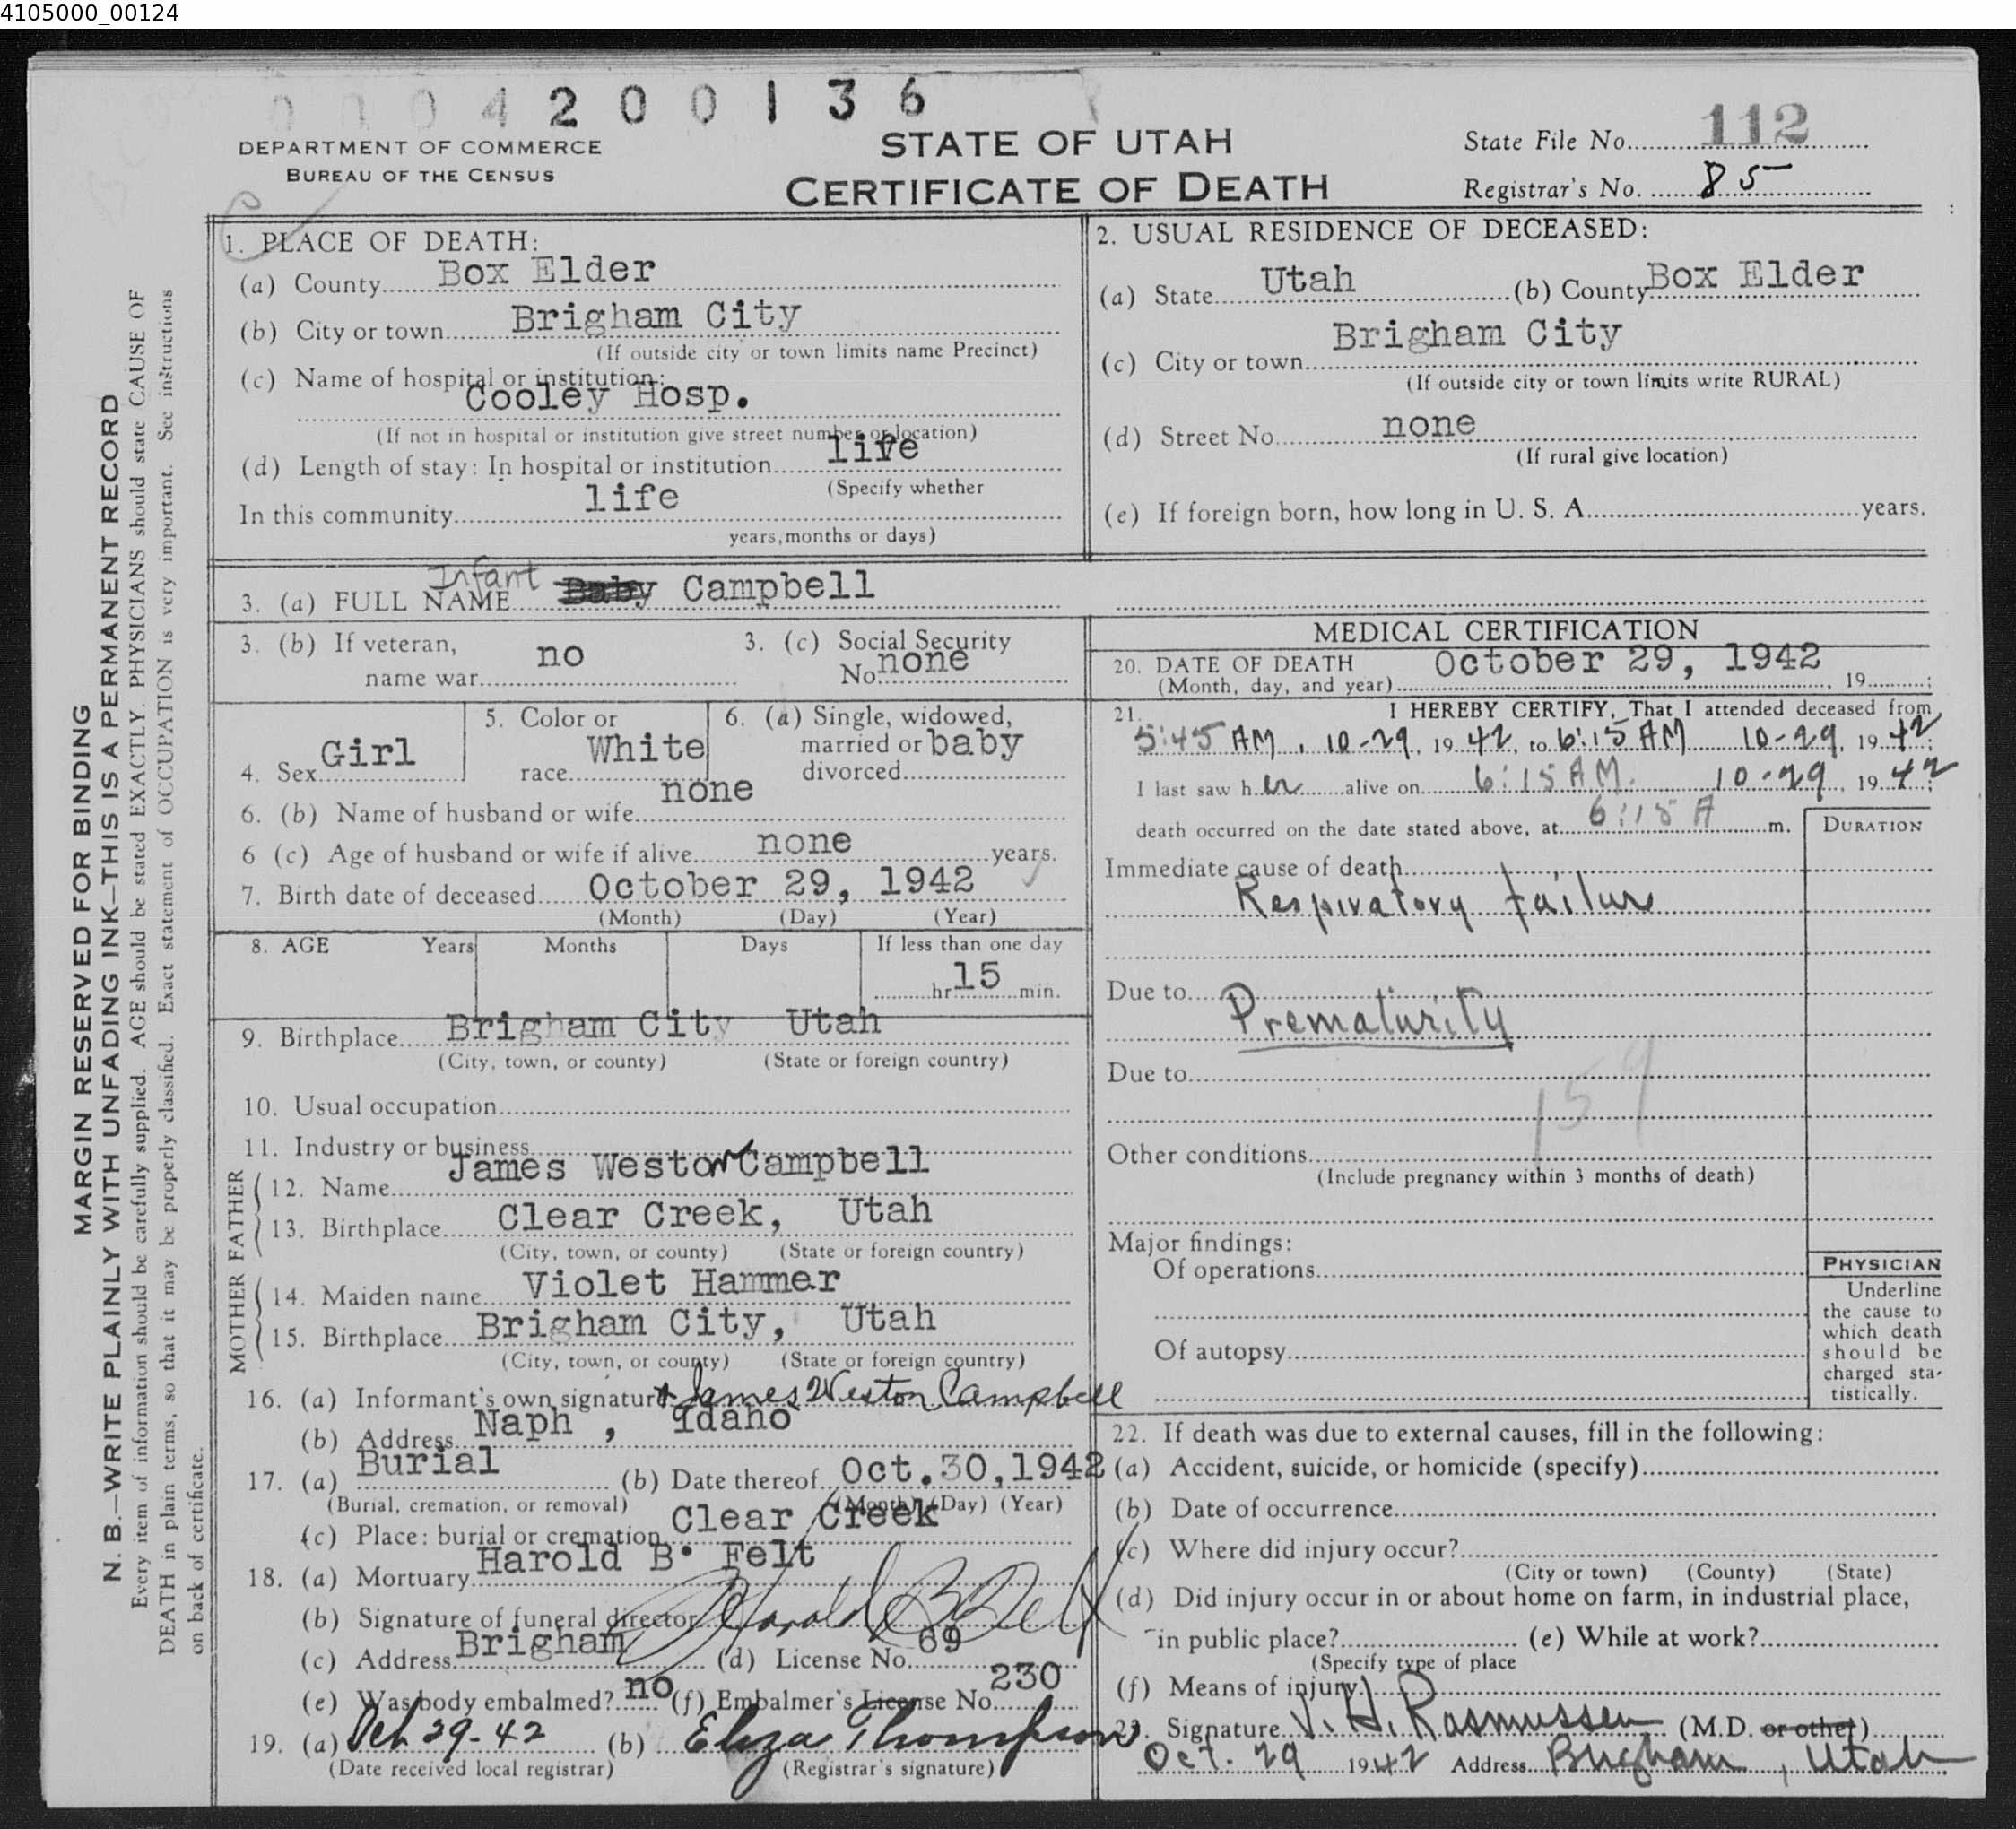 4105000_00124
0004200136
DEPARTMENT OF COMMERCE
BUREAU OF THE CENSUS
STATE OF UTAH
CERTIFICATE OF DEATH
State File No. 112
Registrar's No. 85
1. PLACE OF DEATH:
(a) County Box Elder
(b) City or town Brigham City
(If outside city or town limits name Precinct)
(c) Name of hospital or institution:
Cooley Hosp.
(If not in hospital or institution give street number or location)
(d) Length of stay: In hospital or institution life
(Specify whether
In this community life
years, months or days)
2. USUAL RESIDENCE OF DECEASED:
(a) State Utah (b) County Box Elder
(c) City or town Brigham City
(If outside city or town limits write RURAL)
(d) Street No. none
(If rural give location)
(e) If foreign born, how long in U. S. A. years.
3. (a) FULL NAME Infant Baby Campbell
3. (b) If veteran, name war no
3. (c) Social Security No. none
4. Sex Girl
5. Color or race White
6. (a) Single, widowed, married or divorced baby
6. (b) Name of husband or wife none
6 (c) Age of husband or wife if alive none years.
7. Birth date of deceased October 29, 1942
(Month) (Day) (Year)
8. AGE Years Months Days If less than one day
hr 15 min.
9. Birthplace Brigham City Utah
(City, town, or county) (State or foreign country)
10. Usual occupation
11. Industry or business
FATHER
12. Name James Weston Campbell
13. Birthplace Clear Creek, Utah
(City, town, or county) (State or foreign country)
MOTHER
14. Maiden name Violet Hammer
15. Birthplace Brigham City, Utah
(City, town, or county) (State or foreign country)
16. (a) Informant's own signature James Weston Campbell
(b) Address Naph , Idaho
17. (a) Burial (b) Date thereof Oct.30,1942
(Burial, cremation, or removal) (Month) (Day) (Year)
(c) Place: burial or cremation Clear Creek
18. (a) Mortuary Harold B. Felt
(b) Signature of funeral director Harold B Felt
(c) Address Brigham (d) License No. 69
(e) Was body embalmed? no (f) Embalmer's License No. 230
19. (a) Oct 29-42 (b) Eliza Thompson
(Date received local registrar) (Registrar's signature)
MEDICAL CERTIFICATION
20. DATE OF DEATH October 29, 1942
(Month, day, and year) , 19 ;
21. I HEREBY CERTIFY, That I attended deceased from
5:45 AM, 10-29, 1942, to 6:15 AM 10-29, 1942;
I last saw her alive on 6:15 AM. 10-29, 1942;
death occurred on the date stated above, at 6:15 A m.
DURATION
Immediate cause of death
Respiratory failure
Due to Prematurity
Due to
159
Other conditions
(Include pregnancy within 3 months of death)
Major findings:
Of operations
Of autopsy
PHYSICIAN
Underline
the cause to
which death
should be
charged sta-
tistically.
22. If death was due to external causes, fill in the following:
(a) Accident, suicide, or homicide (specify)
(b) Date of occurrence
(c) Where did injury occur?
(City or town) (County) (State)
(d) Did injury occur in or about home on farm, in industrial place,
in public place? (e) While at work?
(Specify type of place
(f) Means of injury
23. Signature V. H. Rasmussen (M.D. or other)
Oct. 29 1942 Address Brigham, Utah
MARGIN RESERVED FOR BINDING
N. B.—WRITE PLAINLY WITH UNFADING INK—THIS IS A PERMANENT RECORD
Every item of information should be carefully supplied. AGE should be stated EXACTLY. PHYSICIANS should state CAUSE OF
DEATH in plain terms, so that it may be properly classified. Exact statement of OCCUPATION is very important. See instructions
on back of certificate.